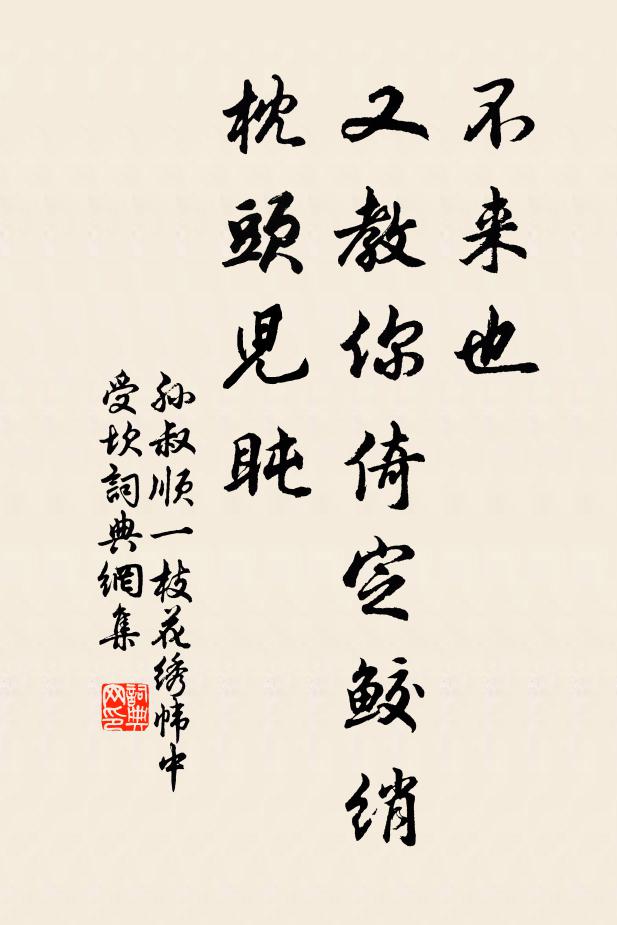 不来也
又教你倚定鲛绡
枕頭児盹
孙叔顺一枝花绣帏中
受坎詞典網集
詞典网印